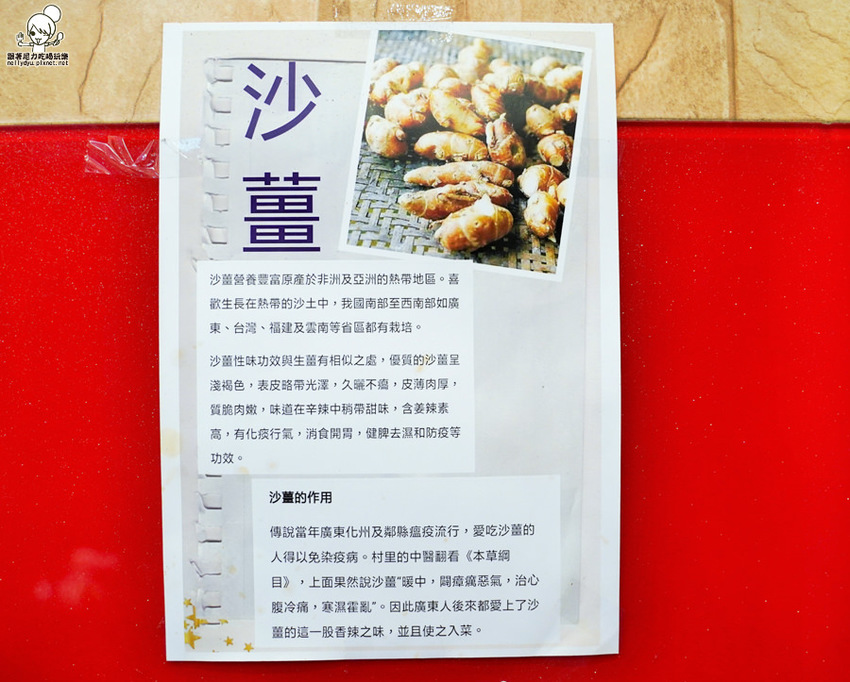 跟著尼力吃喝玩樂
nellydyu.pixnet.net
沙
薑
沙薑營養豐富原產於非洲及亞洲的熱帶地區。喜
歡生長在熱帶的沙土中，我國南部至西南部如廣
東、台灣、福建及雲南等省區都有栽培。
沙薑性味功效與生薑有相似之處，優質的沙薑呈
淺褐色，表皮略帶光澤，久曬不癟，皮薄肉厚，
質脆肉嫩，味道在辛辣中稍帶甜味，含姜辣素
高，有化痰行氣，消食開胃，健脾去濕和防疫等
功效。
沙薑的作用
傳說當年廣東化州及鄰縣瘟疫流行，愛吃沙薑的
人得以免染疫病。村里的中醫翻看《本草綱
目》，上面果然說沙薑“暖中，闢瘴癘惡氣，治心
腹冷痛，寒濕霍亂”。因此廣東人後來都愛上了沙
薑的這一股香辣之味，並且使之入菜。